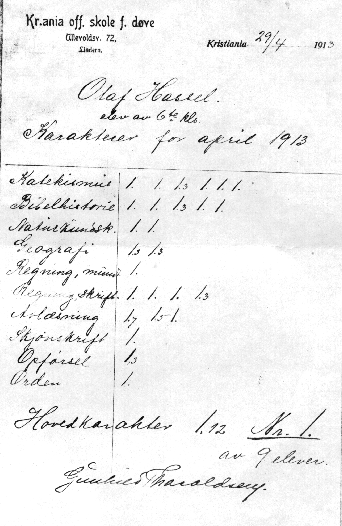 Kr.ania off. skole f. døve
Ullevoldsv. 72,
Kristiania 29/4 1913
Olaf Hassel.
elev av 6te kl.
Karakterer for april 1913
Katekismus 1. 1. 1.3 1. 1. 1.
Bibelhistorie 1. 1. 1.3 1. 1.
Naturkundsk. 1. 1.
Geografi 1.3 1.3
Regning, münd 1.
Regning skrift. 1. 1. 1. 1.3
Avlæsning 1.7 1.5 1.
Skjönskrift 1.
Opförsel 1.3
Orden 1.
Hovedkarakter 1.12 Nr. 1.
av 9 elever.
Gunhild Tharoldsen.